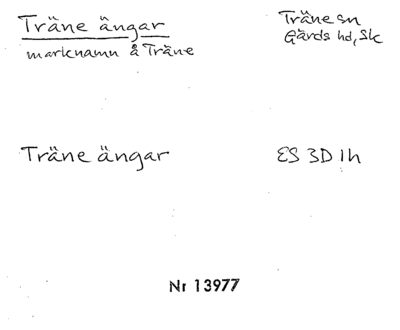 Träne ängar
marknamn å Träne
Träne sn
Gärds hd, Sk
Träne ängar
ES 3D 1h
Nr 13977